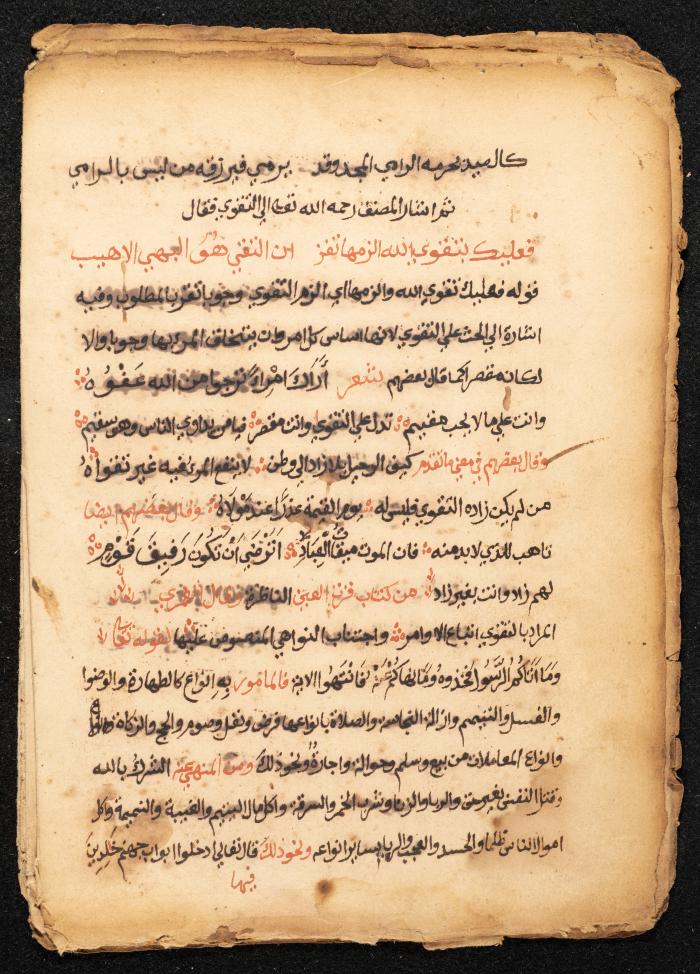 كالصيد يحرمه الرامي المجد وقد يرمي فيرزقه من ليس بالرامي
ثم اشار المصنف رحمه الله تعالى الي التقوي فقال
فعليك بتقوي الله الزمها تفز ان التقي هو البهي الاهيب
قوله فعليك تقوي الله والزمها اي الزم التقوي وجوبا تفز بالمطلوب وفيه
اشارة الي الحث علي التقوي لانها اساس كل امر وان يتخلق المرء بها وجوبا والا
لكان مقصرا كما قال بعضهم شعر أراك امرأ ترجوا من الله عفوه
وانت علي ما لا يحب مقيم تدل علي التقوي وانت مقصر فيا من يداوي الناس وهو سقيم
وقال بعضهم في معني ما تقدم كيف الرحيل بلا زاد الي وطن لا ينفع المرء فيه غير تقواه
من لم يكن زاده التقوي فليس له يوم القيمة عذرا عند مولاه وقال بعضهم ايضا
تاهب للذي لا بد منه فان الموت ميقات العباد اترضي أن تكون رفيق قوم
لهم زاد وانت بغير زاد من كتاب قرة العين الناظرة وقال
المراد بالتقوي اتباع الاوامر واجتناب النواهي المنصوص عليها لقوله تعالى
وما اتاكم الرسول فخذوه وما نهاكم عنه فانتهوا الاية فالمامور به انواع كالطهارة والوضوا
والغسل والتيمم وازالة النجاسة والصلاة بانواعها فرض ونفل وصوم والحج والزكاة
وانواع المعاملات من بيع وسلم وحوالة واجارة ونحو ذلك ومن المنهي عنه الشرك بالله
وقتل النفس بغير حق والربا والزنا وشرب الخمر والسرقة واكل مال اليتيم والغيبة والنميمة واكل
اموال الناس ظلما والحسد والعجب والريا بساير انواعه ونحو ذلك قال تعالي ادخلوا ابواب جهنم خلدين
فيها